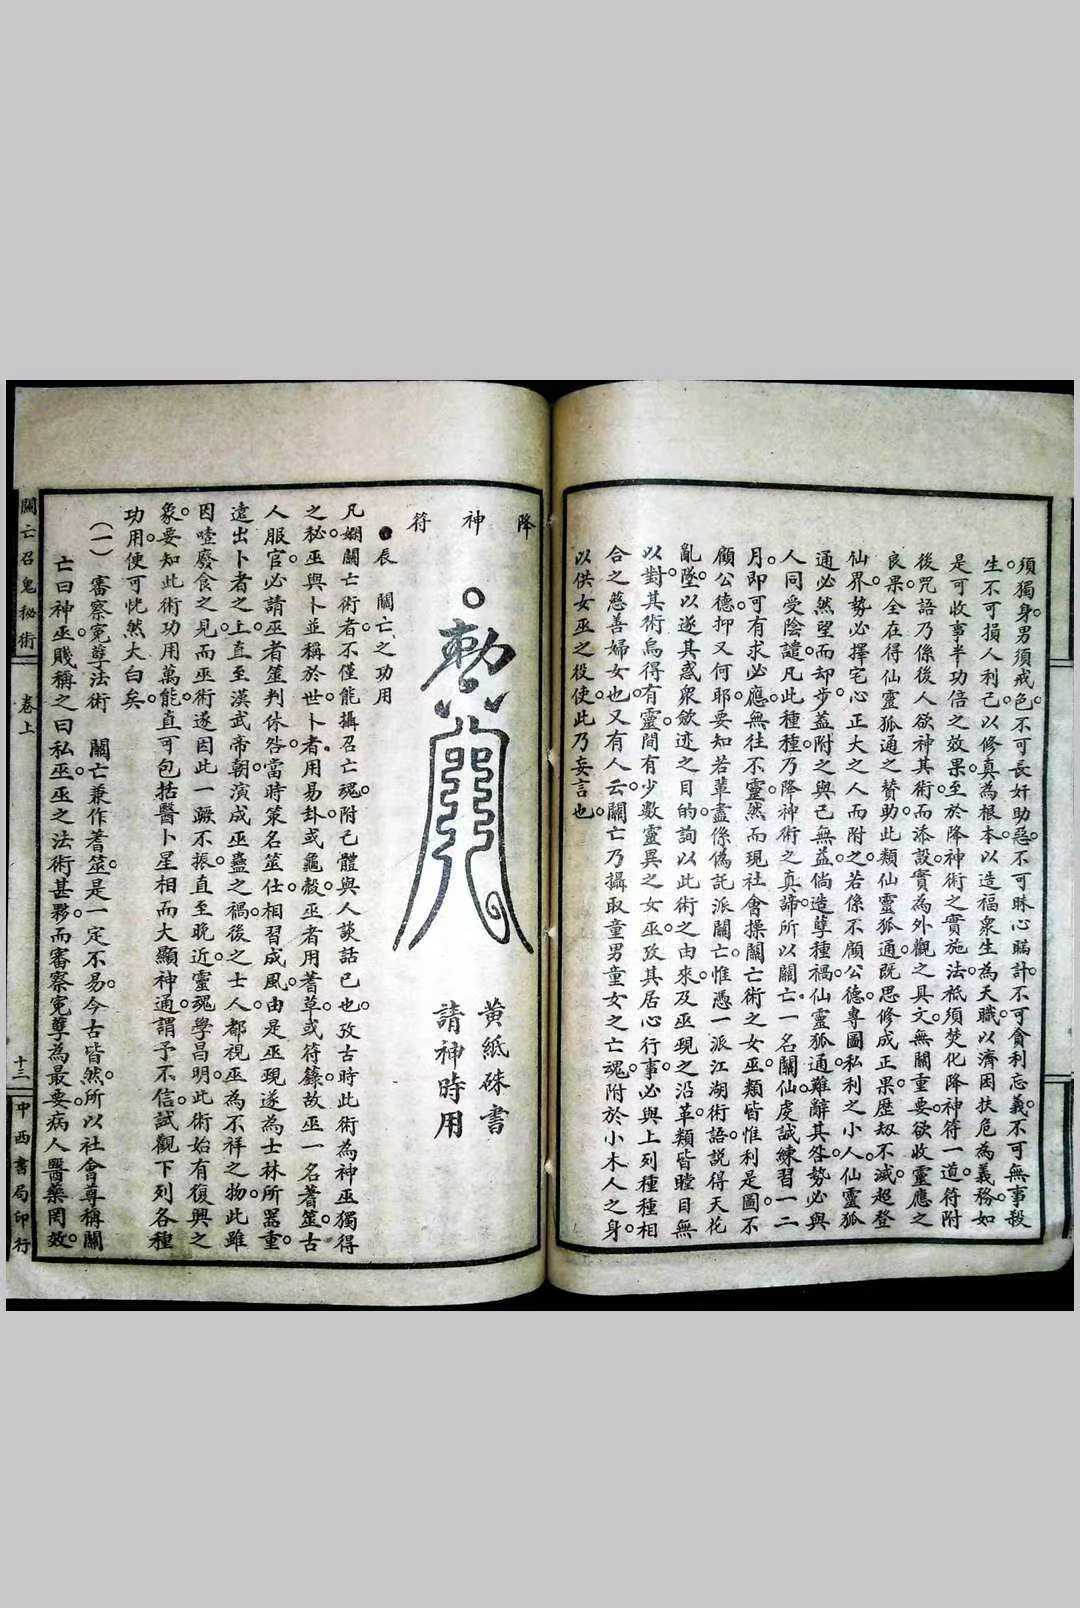 須獨身。男須戒色。不可長奸助惡。不可昧心瞞計。不可貪利忘義。不可無事殺
生。不可損人利己。以修真為根本。以造福衆生為天職。以濟困扶危為義務。如
是可收事半功倍之效果。至於降神術之實施法。祇須焚化降神符一道。符附
後。咒語乃係後人欲神其術。而添設實為外觀之具文。無關重要。欲收靈應之
良果。全在得仙靈狐通之賛助。此類仙靈狐通。既思修成正果。歷刼不滅。超登
仙界。勢必擇宅心正大之人而附之。若係不顧公德。專圖私利之小人。仙靈狐
通必然望而却步。蓋附之與已無益。倘造孽種禍。仙靈狐通難辭其咎。勢必與
人同受陰譴。凡此種種。乃降神術之真諦。所以關亡。一名關仙。虔誠練習一二
月。即可有求必應。無往不靈。然而現社會操關亡術之女巫。類皆惟利是圖。不
顧公德。抑又何耶。要知若輩盡係偽託派關亡。惟憑一派江湖術語。説得天花
亂墜。以遂其惑衆歛迹之目的。詢以此術之由來。及巫覡之沿革。類皆瞠目無
以對。其術烏得有靈。間有少數靈異之女巫。攷其居心行事。必與上列種種相
合之慈善婦女也。又有人云。關亡乃攝取童男童女之亡魂。附於小木人之身。
以供女巫之役使。此乃妄言也。
降神符
黄紙硃書
請神時用
●辰 關亡之功用
凡嫻關亡術者。不僅能攝召亡魂。附己體與人談話已也。攷古時此術為神巫獨得
之秘。巫與卜並稱於世。卜者用易卦或龜殼。巫者用蓍草或符籙。故巫一名蓍筮。古
人服官。必請巫者筮判休咎。當時策名筮仕。相習成風。由是巫覡遂為士林所噐重。
遠出卜者之上。直至漢武帝朝。演成巫蠱之禍。後之士人。都視巫為不祥之物。此雖
因噎廢食之見。而巫術遂因此一蹶不振。直至晚近。靈魂學昌明。此術始有復興之
象。要知此術功用萬能。直可包括醫卜星相。而大顯神通。謂予不信。試觀下列各種
功用。便可恍然大白矣。
(一) 審察冤孽法術 關亡兼作蓍筮。是一定不易。今古皆然。所以社會尊稱關
亡曰神巫。賤稱之曰私巫。巫之法術甚夥。而審察冤孽為最要。病人醫藥罔效。
關亡召鬼秘術 卷上 十三 中西書局印行